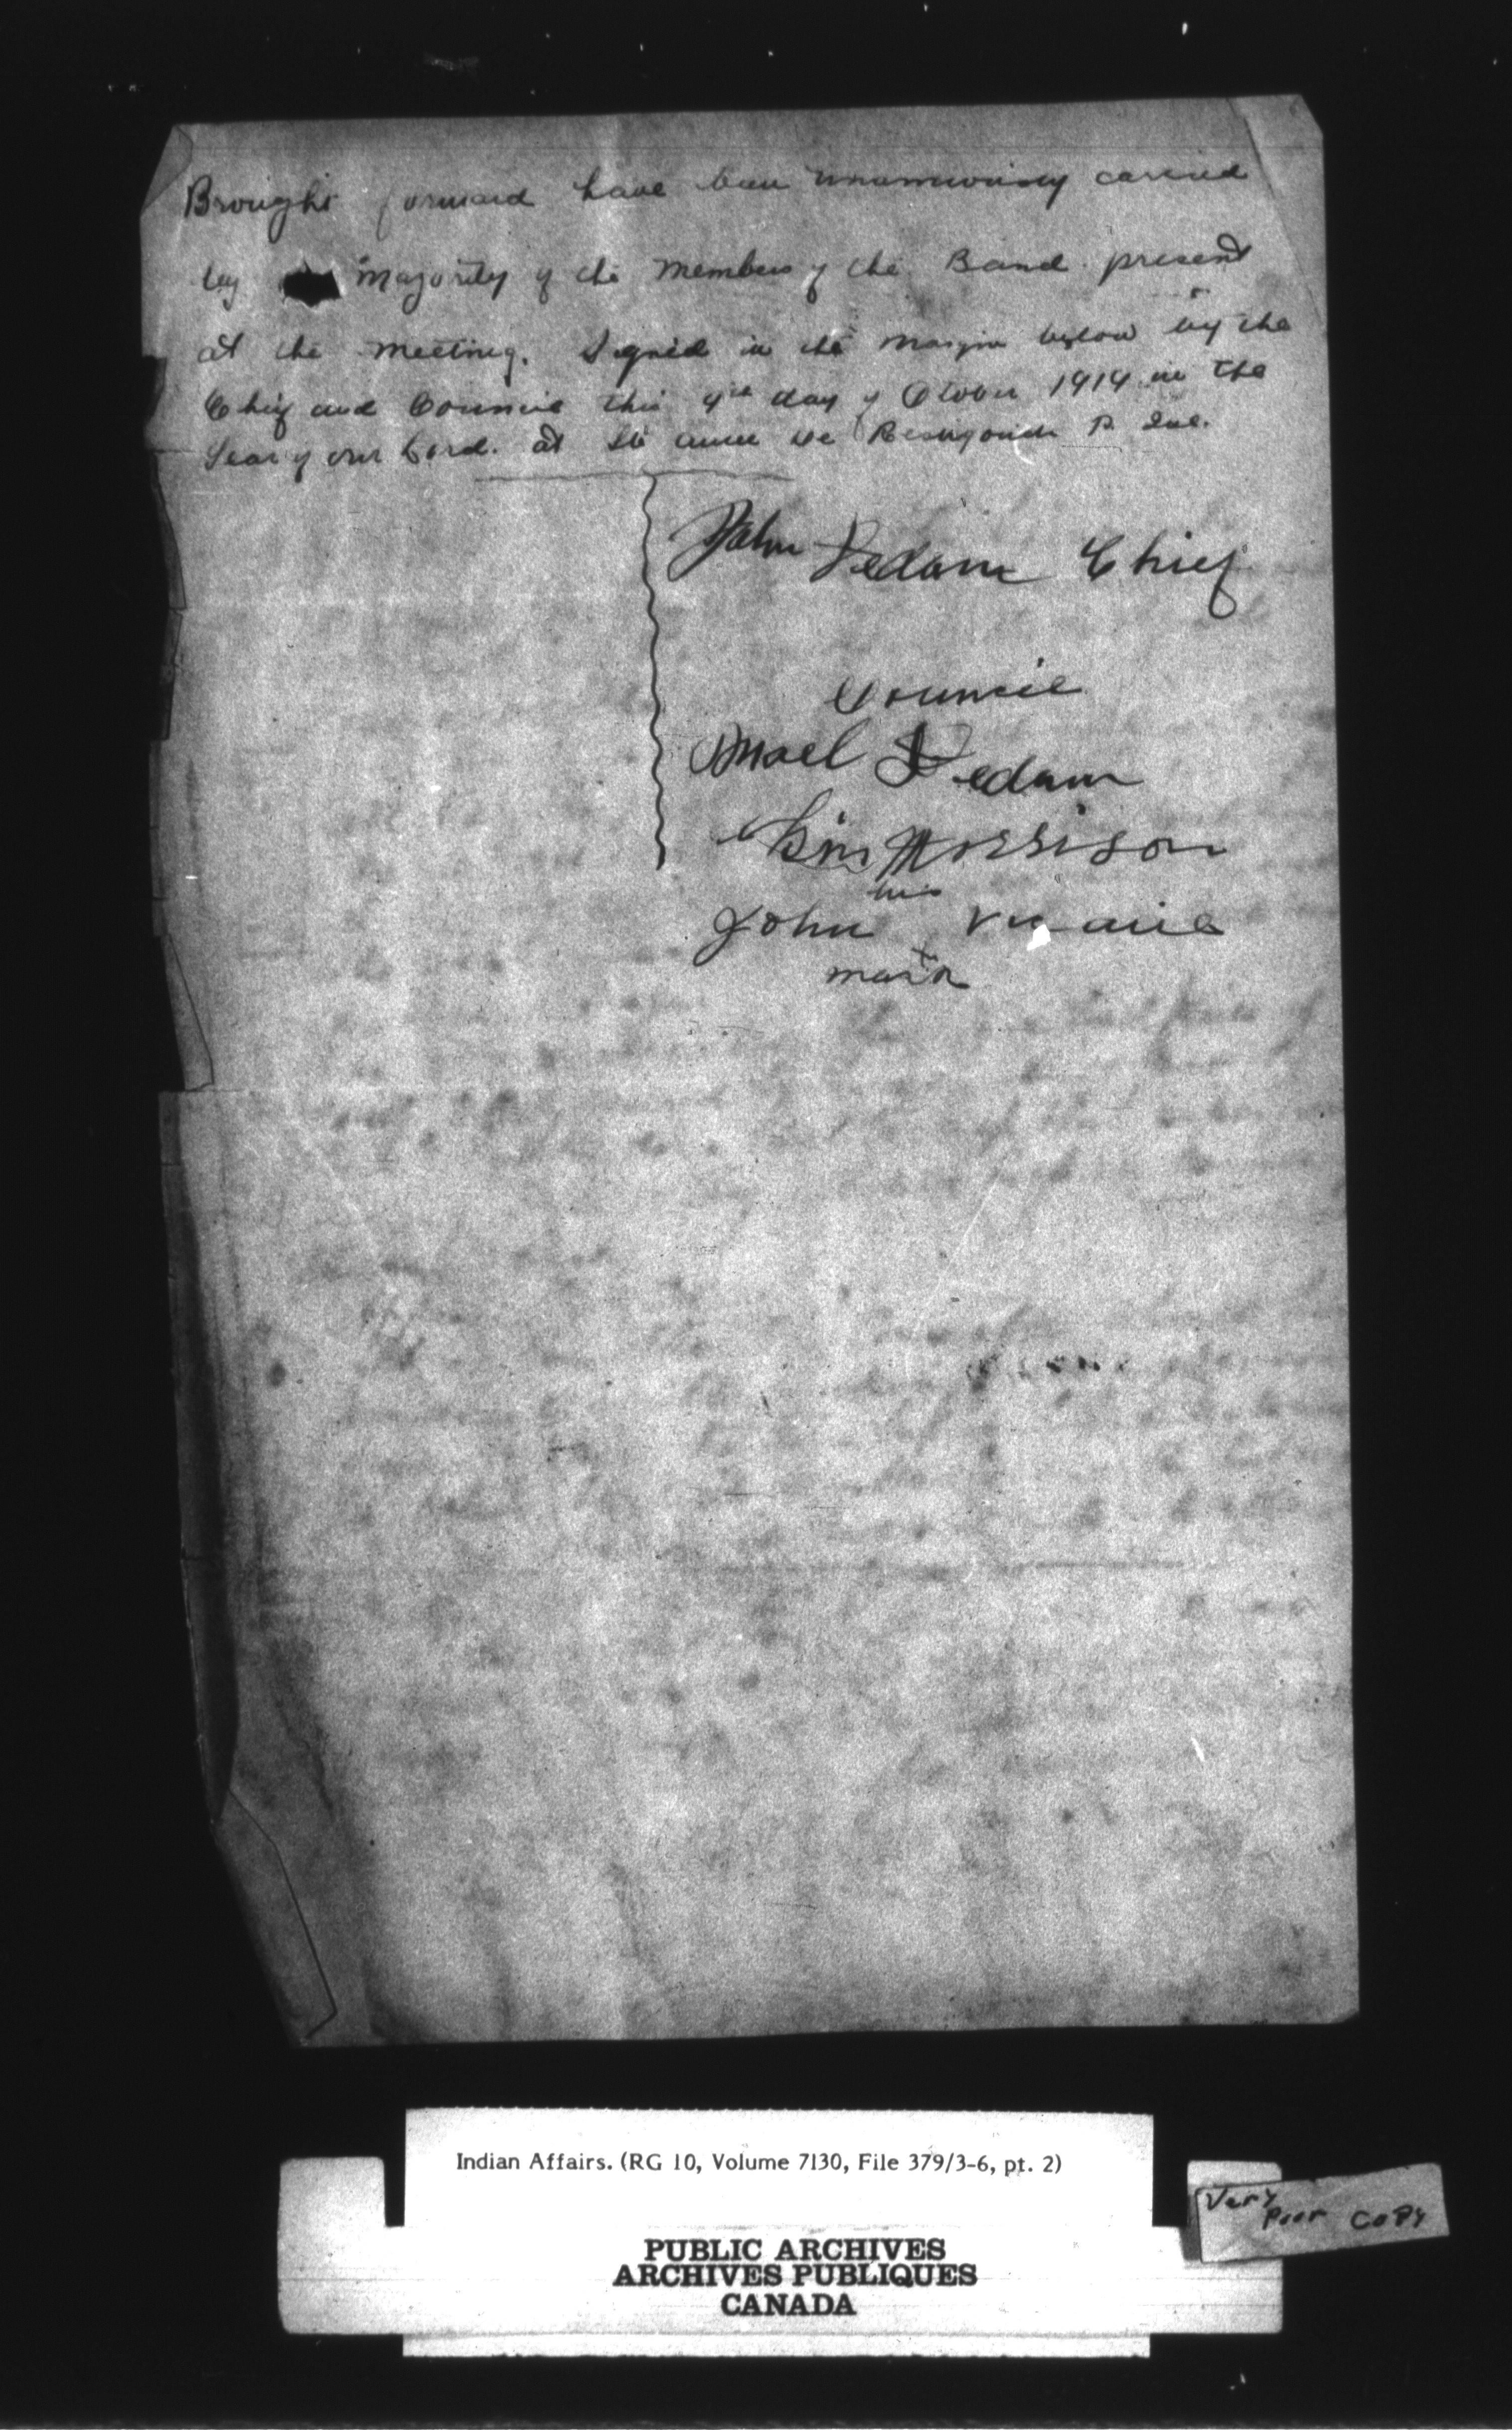 Brought forward have been unanimously carried
by majority of the members of the Band present
at the meeting. Signed in the margin below by the
Chief and Council this 9th day of Otober 1914 in the
Year of our Lord. at Ste Anne de Restigouche P. Que.
John Pedam Chief
Council
Pedam
Morrison
his
John x Vicaire
mark
Indian Affairs. (RG 10, Volume 7130, File 379/3-6, pt. 2)
Very
Poor Copy
PUBLIC ARCHIVES
ARCHIVES PUBLIQUES
CANADA